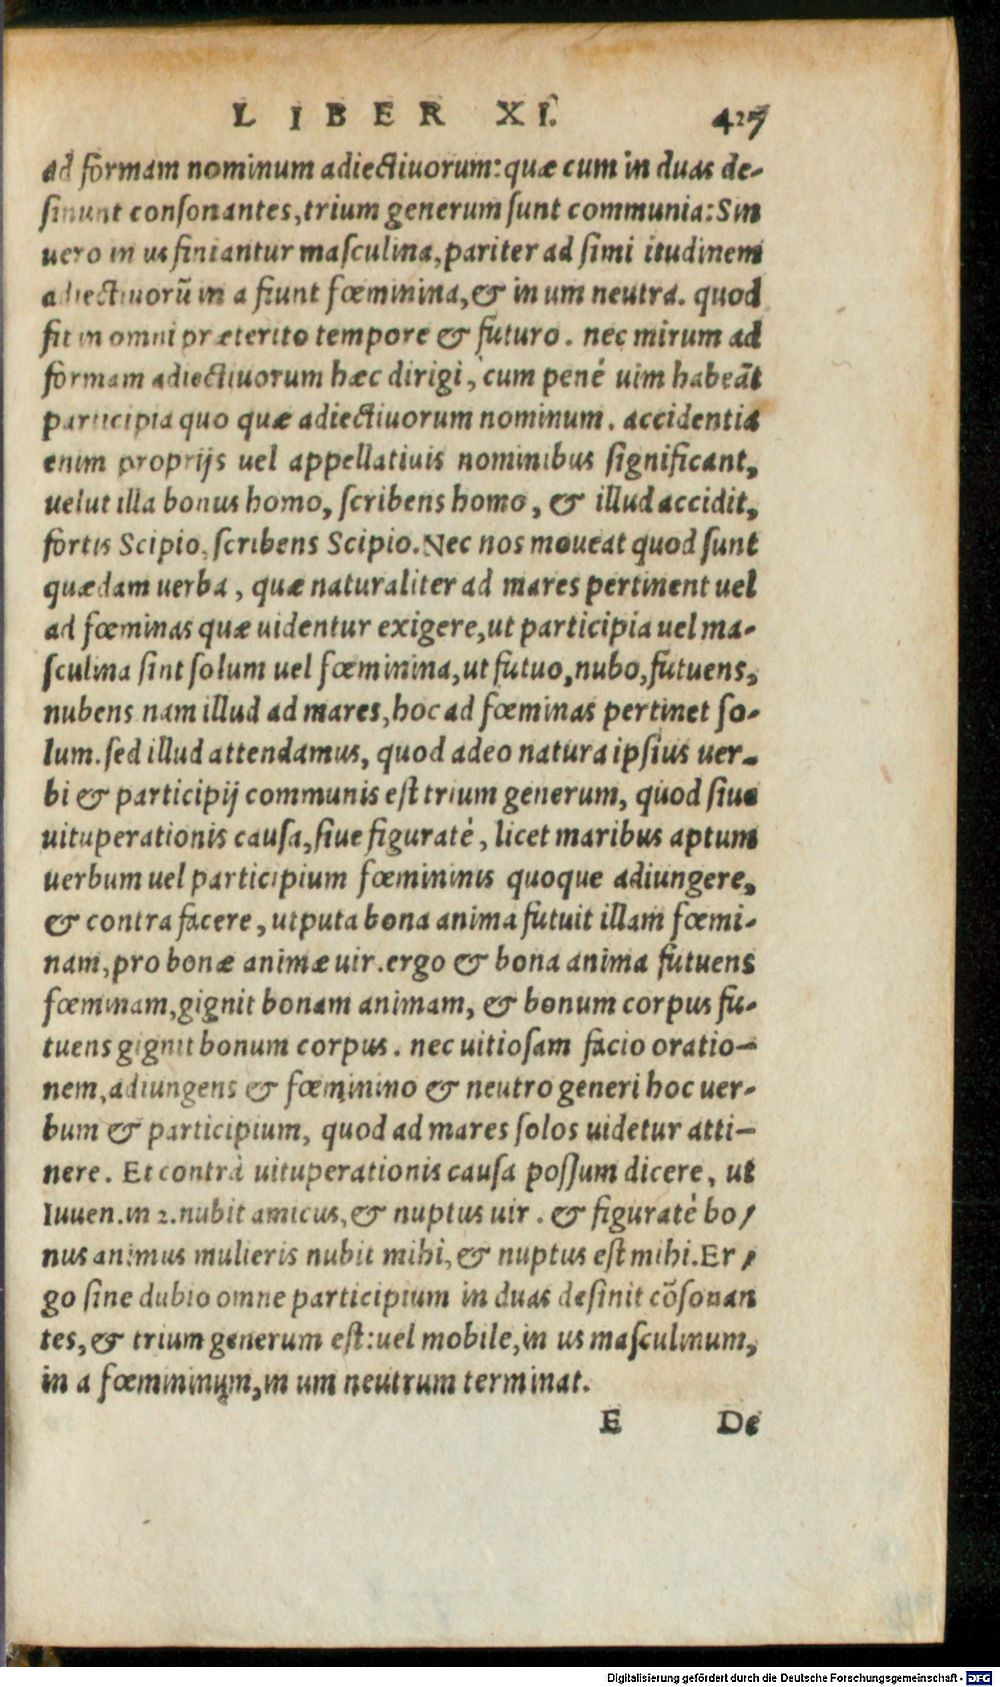 LIBER XI. 427
ad formam nominum adiectiuorum: quæ cum in duas de-
sinunt consonantes, trium generum sunt communia: Sin
uero in us finiantur masculina, pariter ad simi itudinem
adiectiuorũ in a fiunt fœminina, & in um neutra. quod
fit in omni præterito tempore & futuro. nec mirum ad
formam adiectiuorum hæc dirigi, cum penè uim habeãt
participia quo quæ adiectiuorum nominum. accidentia
enim proprijs uel appellatiuis nominibus significant,
uelut illa bonus homo, scribens homo, & illud accidit,
fortis Scipio, scribens Scipio. Nec nos moueat quod sunt
quædam uerba, quæ naturaliter ad mares pertinent uel
ad fœminas quæ uidentur exigere, ut participia uel ma-
sculina sint solum uel fœminina, ut futuo, nubo, futuens,
nubens nam illud ad mares, hoc ad fœminas pertinet so-
lum. sed illud attendamus, quod adeo natura ipsius uer-
bi & participij communis est trium generum, quod siue
uituperationis causa, siue figuratè, licet maribus aptum
uerbum uel participium fœmininis quoque adiungere,
& contra facere, utputa bona anima futuit illam fœmi-
nam, pro bonæ animæ uir. ergo & bona anima futuens
fœminam, gignit bonam animam, & bonum corpus fu-
tuens gignit bonum corpus. nec uitiosam facio oratio-
nem, adiungens & fœminino & neutro generi hoc uer-
bum & participium, quod ad mares solos uidetur atti-
nere. Et contrà uituperationis causa possum dicere, ut
Iuuen. in 2. nubit amicus, & nuptus uir. & figuratè bo/
nus animus mulieris nubit mihi, & nuptus est mihi. Er/
go sine dubio omne participium in duas desinit cõsonan
tes, & trium generum est: uel mobile, in us masculinum,
in a fœmininum, in um neutrum terminat.
E De
Digitalisierung gefördert durch die Deutsche Forschungsgemeinschaft - DFG